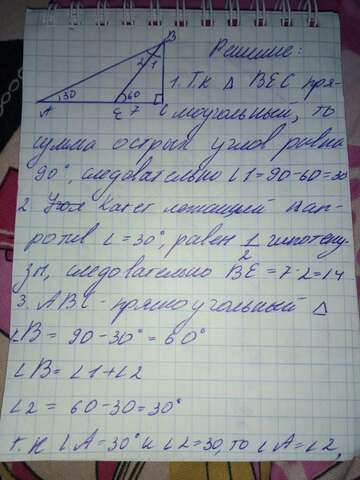 B
2 1
30 60
A E 7 C
Решение:
1. Т.к Δ BEC пря-
моугольный, то
сумма острых углов равна
90°, следовательно ∠1=90-60=30
2. Катет лежащий нап-
ротив ∠=30°, равен 1/2 гипотену-
зы, следовательно BE=7·2=14
3. ABC - прямоугольный Δ
∠B = 90-30° = 60°
∠B = ∠1+∠2
∠2 = 60-30=30°
т.к ∠A=30° и ∠2=30, то ∠A=∠2,